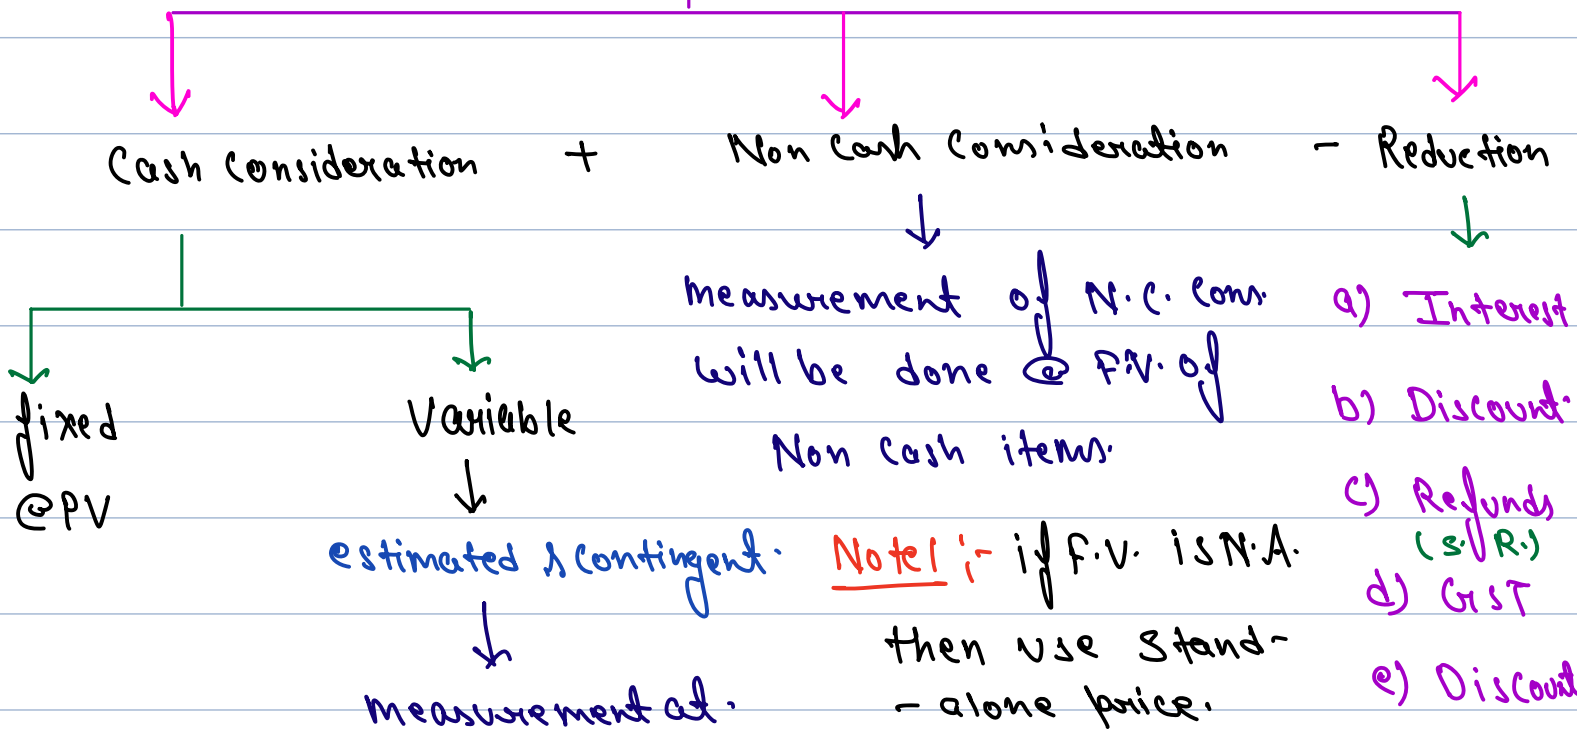 Cash Consideration + Non Cash Consideration - Reduction
fixed
@PV
Variable
estimated & contingent.
measurement at.
measurement of N.C. Cons.
will be done @ F.V. of
Non Cash items.
Note1 :- if F.V. is N.A.
then use Stand-
- alone price.
a) Interest
b) Discount.
c) Refunds
(S.R.)
d) GST
e) Discount